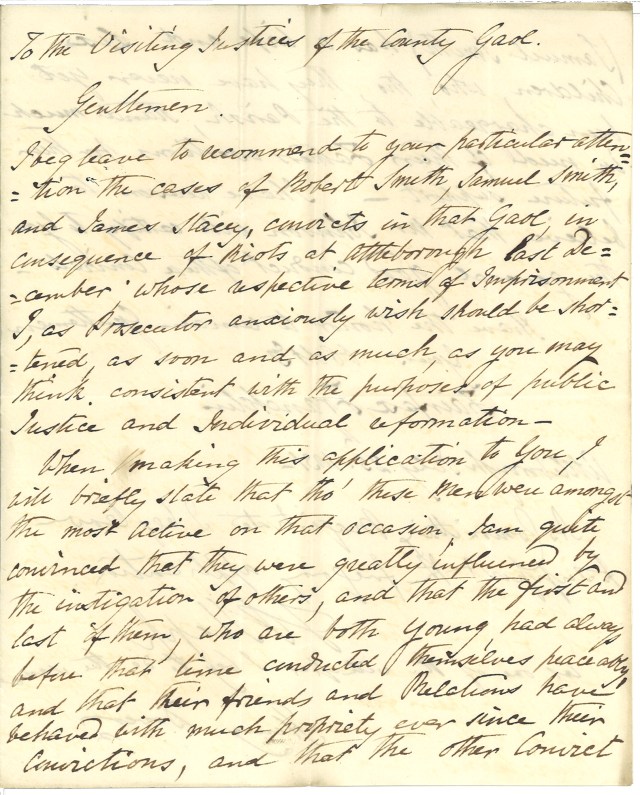 To the Visiting Justices of the County Gaol.
Gentlemen.
I beg leave to recommend to your particular atten=
=tion the cases of Robert Smith, Samuel Smith,
and James Stacey, convicts in that Gaol, in
consequence of Riots at Attleborough last De=
=cember; whose respective terms of Imprisonment
I, as Prosecutor anxiously wish should be shor=
=tened, as soon and as much, as you may
think, consistent with the purposes of public
Justice and Individual reformation—
When making this application to You, I
will briefly state that tho' these Men were amongst
the most active on that occasion, I am quite
convinced that they were greatly influenced by
the instigation of others, and that the first and
last of them, who are both young, had always
before that time conducted themselves peaceably,
and that their friends and Relations have
behaved with much propriety ever since their
Convictions, and that the other Convict